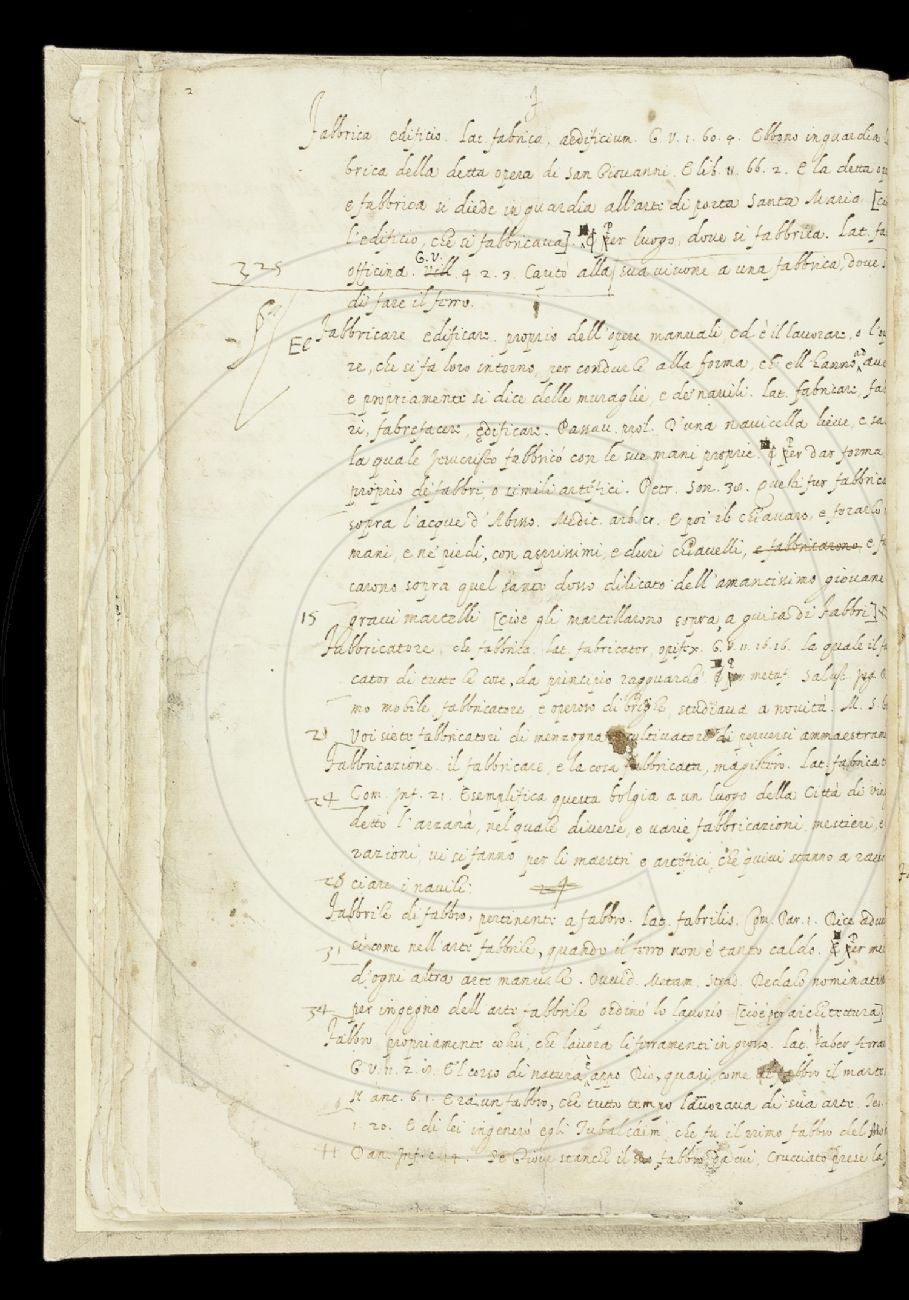 2
F
Fabbrica edificio. Lat. fabrica, aedificium. G. V. 1. 60. 4. Ebbono in guardia
brica della detta opera di San Giovanni. E lib. 11. 66. 2. E la detta
e fabbrica si diede in guardia all'arte di porta Santa Maria
l'edificio, che si fabbricava]. ¶ Per luogo, dove si fabbrica. Lat.
G. V.
325 officina. 4. 2. 3. alla sua visione a una fabbrica, dove
di fare il ferro.
EC Fabbricare edificare. proprio dell'opere manuali, ed è il lavorare, o
re, che si fa loro intorno, per condurle alla forma, ch'ell'hanno
e propriamente si dice delle muraglie, e de' navili. Lat. fabricare,
ri, fabrefacere, edificare. Passav. prol. D'una navicella lieve, e
la quale Jesucristo fabbricò con le sue mani proprie. ¶ Per dar forma,
proprio de' fabbri, o simili artefici. Petr. Son. 38. Questi fur
sopra l'acque d'Abisso. Medit. arb. cr. E poi il chiavaro, e
mani, e ne' piedi, con asprissimi, e duri chiavelli, e fabbricarono, e
carono sopra quel santo dosso dilicato dell'amantissimo giovane
15 gravi martelli [cioè gli martellarono sopra, a guisa di fabbri]
Fabbricatore, che fabbrica. Lat. fabricator, opifex. G. V. 11. 16. 16. La quale il
cator di tutte le cose, da principio ragguardò ¶ Per metaf. Salust. Jug.
mo mobile, fabbricatore, e operoso di brighe studiava a novità. M.
20 Voi siete fabbricatori di menzogna, cultivatori di perversi
Fabbricazione. il fabbricare, e la cosa fabbricata, magistero. Lat.
24 Com. Inf. 21. Esemplifica questa bolgia a un luogo della Città di
detto l'arzanà, nel quale diverse, e varie fabbricazioni, mestieri,
razioni, vi si fanno per li maestri e artefici, che quivi stanno a
28 ciare i navili.
Fabbrile di fabbro, pertinente a fabbro. Lat. fabrilis. Com. Par. 1. Dice
31 siccome nell'arte fabbrile, quando il ferro non è tanto caldo. ¶ Per
d'ogni altra arte manuale. Ovvid. Metam. Strad. Dedalo
34 per ingegno dell'arte fabbrile ordinò lo lavorio [cioè architettura]
Fabbro, propriamente colui, che lavora li ferramenti in grosso. Lat. faber
G. V. 11. 2. 18. E'l corso di natura è appo Dio, quasi come al fabbro il
N. ant. 6. 1. Era un fabbro, che tutto tempo lavorava di sua arte.
1. 20. E di lei ingenerò egli Tubalcaim, che fu il primo fabbro del
41 Dan. Inf. c. 14. Se Giove stanchi il suo fabbro, da cui, Crucciato prese la